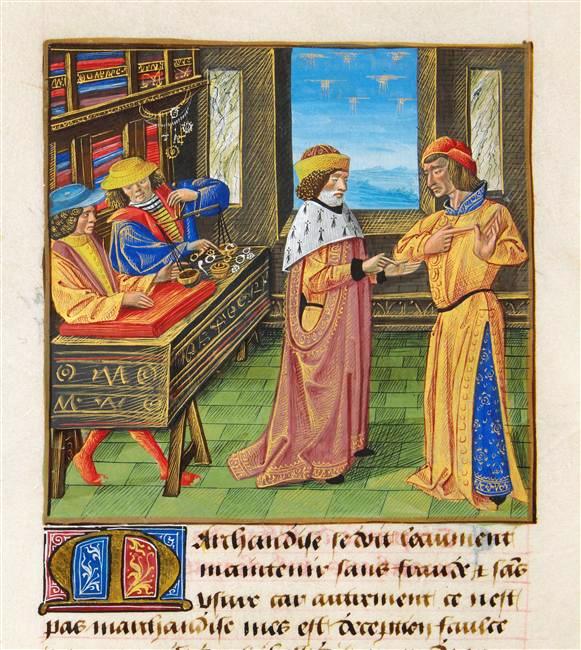 Marchandise se doit leaument
maintenir sans fraude & sās
usure car autrement ce nest
pas marchandise mes est deception faulce